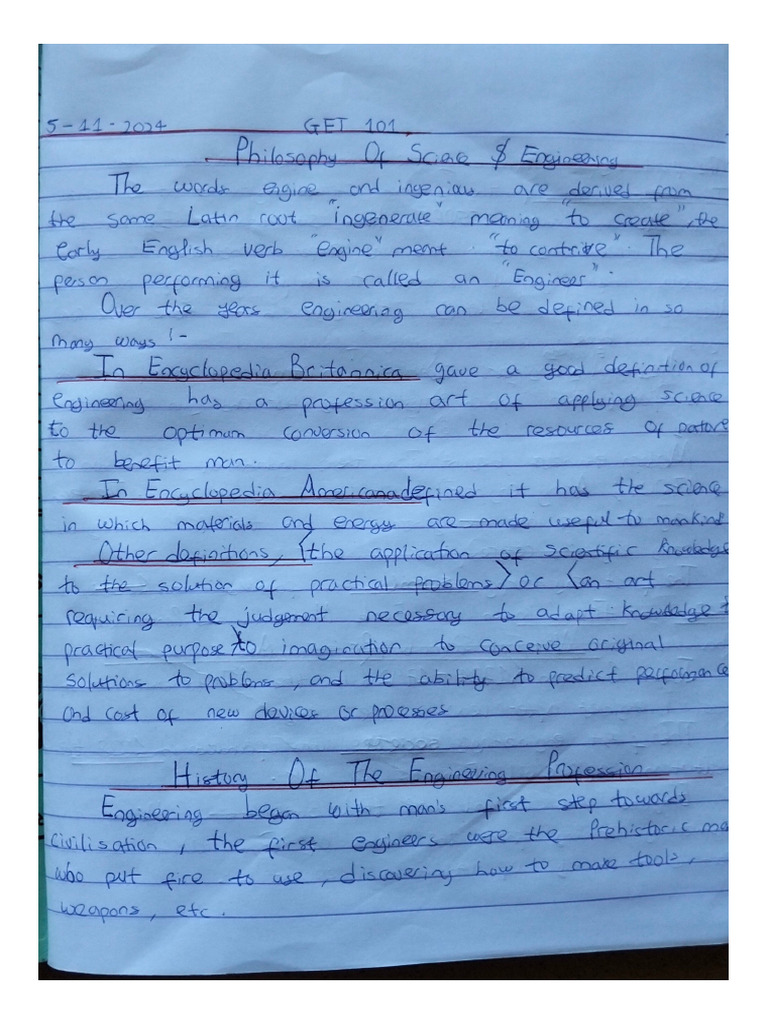 5-11-2024 GET 101
Philosophy Of Sciene & Engineering
The words engine and ingenious are derived from
the same Latin root "ingenerate" meaning "to create", the
early English verb "engine" meant "to contrive". The
person performing it is called an "Engineer".
Over the years engineering can be defined in so
many ways :-
In Encyclopedia Britannica gave a good definition of
engineering has a profession art of applying science
to the optimum conversion of the resources of nature
to benefit man.
In Encyclopedia Americana defined it has the science
in which materials and energy are made useful to mankind
Other definitions, (the application of scientific knowledge
to the solution of practical problems) or (an art
requiring the judgement necessary to adapt knowledge
practical purpose to imagination to conceive original
solutions to problems, and the ability to predict performance
and cost of new devices or processes
History Of The Engineering Profession
Engineering began with man's first step towards
civilisation, the first engineers were the Prehistoric
who put fire to use, discovering how to make tools,
weapons, etc.